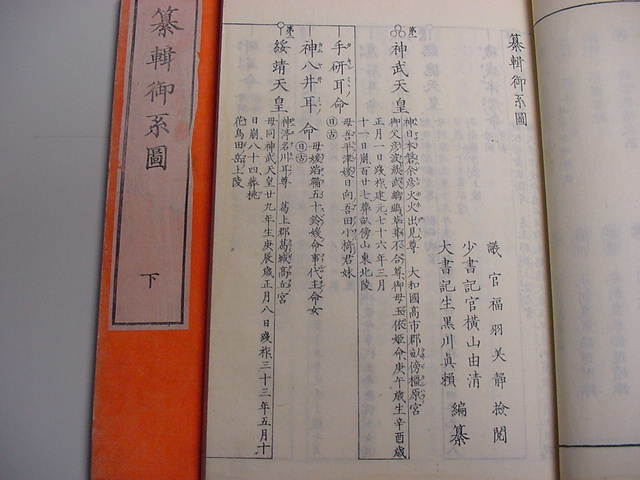 纂輯御系圖
下
纂輯御系圖
議官福羽美靜檢閲
少書記官横山由清
大書記生黒川真頼
編纂
神武天皇
神日本磐余彦火火出見尊 大和國高市郡畝傍橿原宮
御父彦波瀲武鸕鷀草葺不合尊御母玉依姫命庚午歳生辛酉歳
正月一日踐祚建元七十六年三月
十一日崩百廿七葬畝傍山東北陵
手研耳命
母吾平津媛日向吾田小椅君妹
神八井耳命
母媛蹈鞴五十鈴媛命事代主命女
綏靖天皇
神渟名川耳尊 葛上郡葛城高丘宮
母同神武天皇廿九年生庚辰歳正月八日踐祚三十三年五月十
日崩八十四葬桃
花鳥田丘上陵